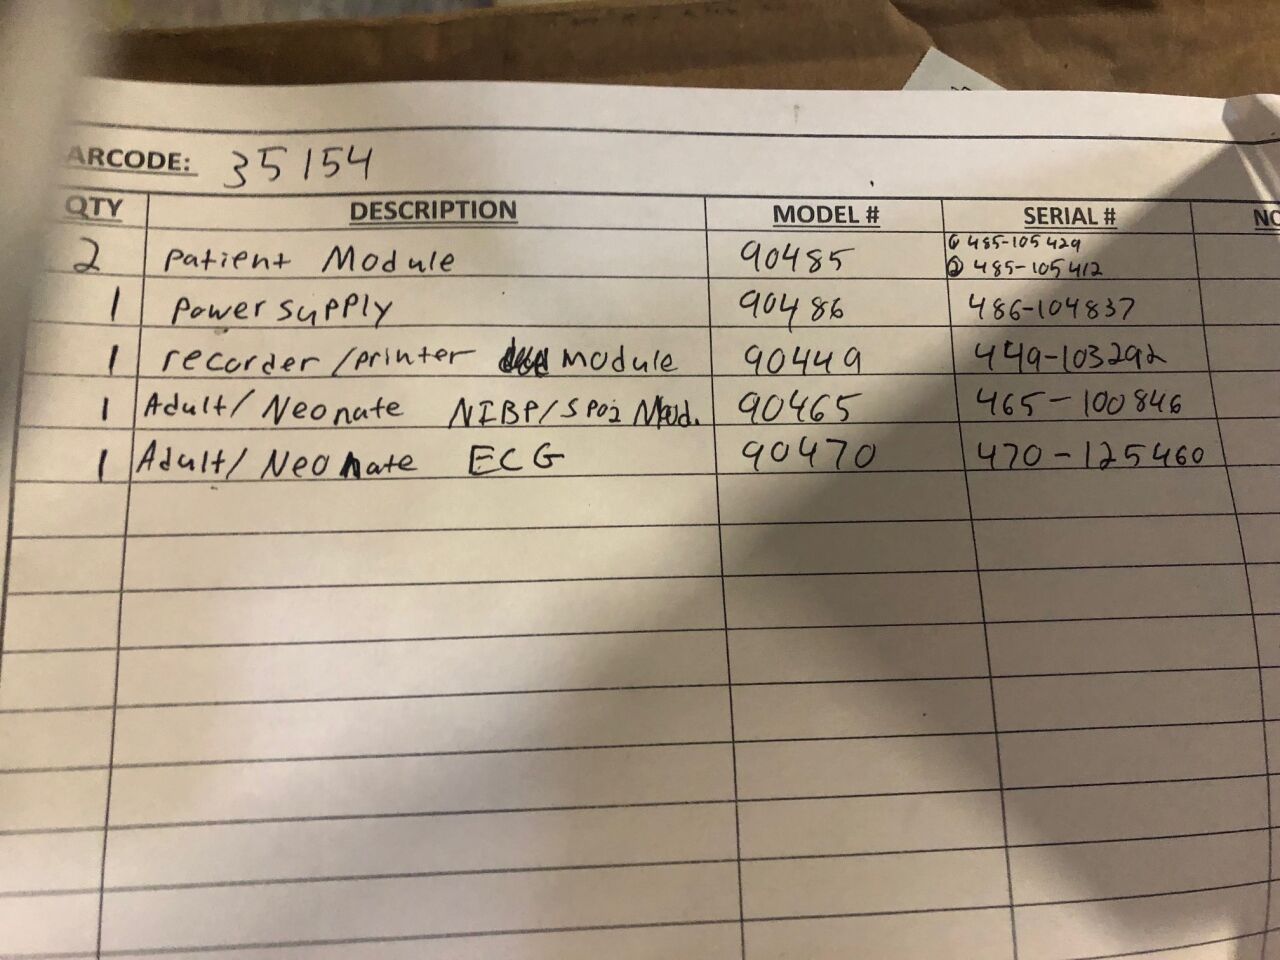 ARCODE: 35154
QTY DESCRIPTION MODEL # SERIAL # NO
2 Patient Module 90485 ① 485-105429
② 485-105412
1 Power supply 90486 486-104837
1 recorder/printer Module 90449 449-103292
1 Adult/Neonate NIBP/SPO2 Mod. 90465 465-100846
1 Adult/Neonate ECG 90470 470-125460